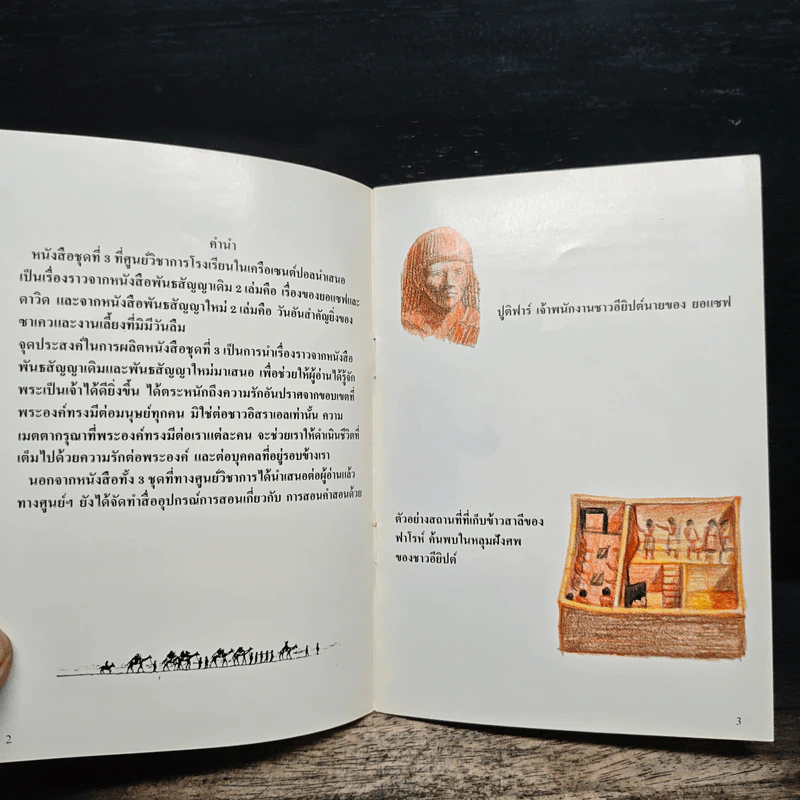 คำนำ
หนังสือชุดที่ 3 ที่ศูนย์วิชาการโรงเรียนในเครือเซนต์ปอลนำเสนอ
เป็นเรื่องราวจากหนังสือพันธสัญญาเดิม 2 เล่มคือ เรื่องของยอแซฟและ
ดาวิด และจากหนังสือพันธสัญญาใหม่ 2 เล่มคือ วันอันสำคัญยิ่งของ
ซาเควและงานเลี้ยงที่มิมีวันลืม
จุดประสงค์ในการผลิตหนังสือชุดที่ 3 เป็นการนำเรื่องราวจากหนังสือ
พันธสัญญาเดิมและพันธสัญญาใหม่มาเสนอ เพื่อช่วยให้ผู้อ่านได้รู้จัก
พระเป็นเจ้าได้ดียิ่งขึ้น ได้ตระหนักถึงความรักอันปราศจากขอบเขตที่
พระองค์ทรงมีต่อมนุษย์ทุกคน มิใช่ต่อชาวอิสราเอลเท่านั้น ความ
เมตตากรุณาที่พระองค์ทรงมีต่อเราแต่ละคน จะช่วยเราให้ดำเนินชีวิตที่
เต็มไปด้วยความรักต่อพระองค์ และต่อบุคคลที่อยู่รอบข้างเรา
นอกจากหนังสือทั้ง 3 ชุดที่ทางศูนย์วิชาการได้นำเสนอต่อผู้อ่านแล้ว
ทางศูนย์ฯ ยังได้จัดทำสื่ออุปกรณ์การสอนเกี่ยวกับ การสอนคำสอนด้วย
2
ปูติฟาร์ เจ้าพนักงานชาวอียิปต์นายของ ยอแซฟ
ตัวอย่างสถานที่ที่เก็บข้าวสาลีของ
ฟาโรห์ ค้นพบในหลุมฝังศพ
ของชาวอียิปต์
3